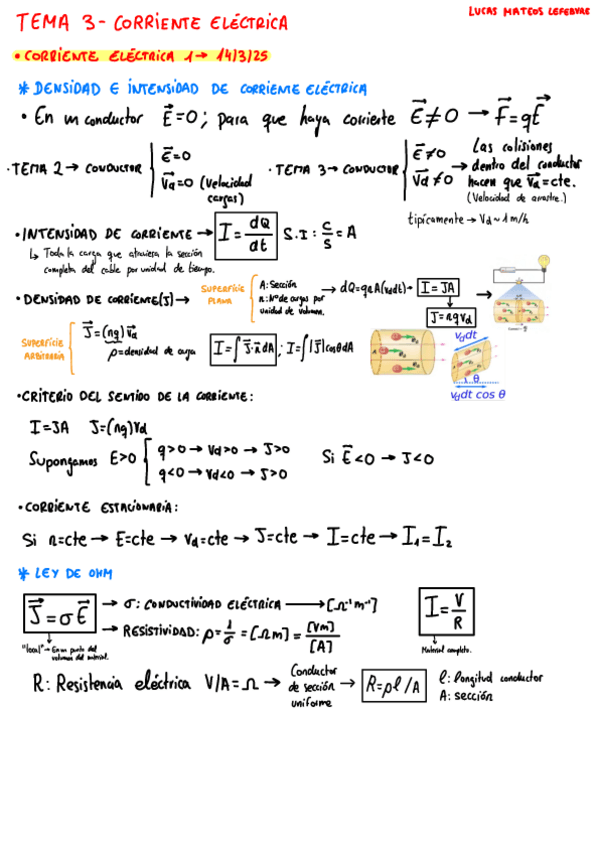 LUCAS MATEOS LEFEBVRE
TEMA 3- CORRIENTE ELÉCTRICA
• CORRIENTE ELÉCTRICA 1→ 14/3/25
* DENSIDAD E INTENSIDAD DE CORRIENTE ELÉCTRICA
• En un conductor E⃗=0; para que haya corriente E⃗≠0 → F⃗=qE⃗
• TEMA 2→ CONDUCTOR { E⃗=0
V⃗d=0 (Velocidad cargas)
• TEMA 3→ CONDUCTOR { E⃗≠0
V⃗d≠0
→ Las colisiones dentro del conductor hacen que V⃗d=cte.
(Velocidad de arrastre.)
típicamente → Vd~1m/h
• INTENSIDAD DE CORRIENTE → I=dQ/dt S.I: C/s = A
↳ Toda la carga que atraviesa la sección
completa del cable por unidad de tiempo.
• DENSIDAD DE CORRIENTE(J)→
SUPERFICIE PLANA
A: Sección
n: Nº de cargas por unidad de volumen.
→ dQ=qnA(Vddt)→ I=JA
J=nqVd
SUPERFICIE ARBITRARIA
J⃗=(nq)V⃗d
ρ=densidad de carga
I=∫J⃗·n⃗dA; I=∫|J⃗|cosθdA
vddt
θ
vddt cos θ
• CRITERIO DEL SENTIDO DE LA CORRIENTE:
I=JA J=(nq)Vd
Supongamos E>0 { q>0 → Vd>0 → J>0
q<0 → Vd<0 → J>0
Si E⃗<0 → J<0
• CORRIENTE ESTACIONARIA:
Si n=cte → E=cte → Vd=cte → J=cte → I=cte → I₁=I₂
* LEY DE OHM
J⃗=σE⃗
→ σ: CONDUCTIVIDAD ELÉCTRICA → [Ω⁻¹m⁻¹]
→ RESISTIVIDAD: ρ=1/σ=[Ωm]=[Vm]/[A]
"local"→ En un punto del volumen del material.
I=V/R
Material completo.
R: Resistencia eléctrica V/A=Ω → Conductor de sección uniforme → R=ρl/A
l: longitud conductor
A: sección